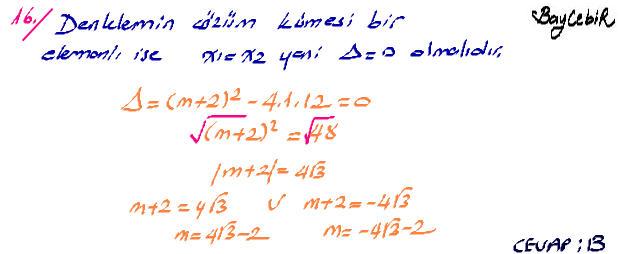 16./ Denklemin çözüm kümesi bir BayCebiR
elemanlı ise x1=x2 yani Δ=0 olmalıdır.
Δ=(m+2)²-4.1.12=0
√(m+2)² = √48
|m+2|=4√3
m+2=4√3 ∪ m+2=-4√3
m=4√3-2 m=-4√3-2
CEVAP:B